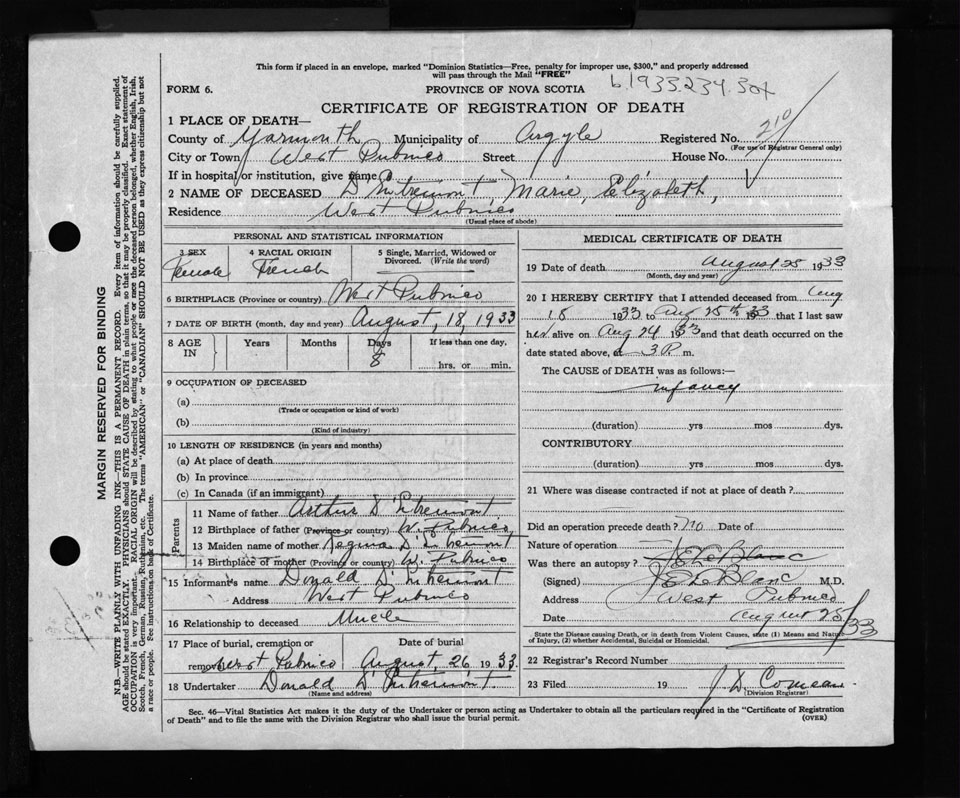 This form if placed in an envelope, marked "Dominion Statistics—Free, penalty for improper use, $300," and properly addressed
will pass through the Mail "FREE"
FORM 6.
PROVINCE OF NOVA SCOTIA
b.1933.234.
CERTIFICATE OF REGISTRATION OF DEATH
1 PLACE OF DEATH—
County of Yarmouth Municipality of Argyle Registered No. 210
(For use of Registrar General only)
City or Town West Pubnico Street House No.
If in hospital or institution, give name
2 NAME OF DECEASED D'Entremont, Marie, Elizabeth,
Residence West Pubnico
(Usual place of abode)
PERSONAL AND STATISTICAL INFORMATION
3 SEX Female
4 RACIAL ORIGIN French
5 Single, Married, Widowed or Divorced. (Write the word)
6 BIRTHPLACE (Province or country) West Pubnico
7 DATE OF BIRTH (month, day and year) August, 18, 1933
8 AGE IN Years Months Days 8 If less than one day, hrs. or min.
9 OCCUPATION OF DECEASED
(a)
(Trade or occupation or kind of work)
(b)
(Kind of industry)
10 LENGTH OF RESIDENCE (in years and months)
(a) At place of death
(b) In province
(c) In Canada (if an immigrant)
Parents
11 Name of father Arthur D'Entremont
12 Birthplace of father (Province or country) W. Pubnico
13 Maiden name of mother Regina D'Entremont
14 Birthplace of mother (Province or country) W. Pubnico
15 Informant's name Donald D'Entremont
Address West Pubnico
16 Relationship to deceased Uncle
17 Place of burial, cremation or removal West Pubnico
Date of burial August, 26, 1933.
18 Undertaker Donald D'Entremont.
(Name and address)
MEDICAL CERTIFICATE OF DEATH
19 Date of death August 25 1933
(Month, day and year)
20 I HEREBY CERTIFY that I attended deceased from Aug
18 1933 to Aug 25th 1933 that I last saw
her alive on Aug 24 1933 and that death occurred on the
date stated above, at 3 P. m.
The CAUSE of DEATH was as follows:—
infancy
(duration) yrs mos dys.
CONTRIBUTORY
(duration) yrs mos dys.
21 Where was disease contracted if not at place of death?
Did an operation precede death? No Date of
Nature of operation
Was there an autopsy? LeBlanc
(Signed) LeBlanc M.D.
Address West Pubnico
Date August 25/33
State the Disease causing Death, or in death from Violent Causes, state (1) Means and Nature
of Injury, (2) whether Accidental, Suicidal or Homicidal.
22 Registrar's Record Number
23 Filed 19 J. D. Comeau
(Division Registrar)
Sec. 46—Vital Statistics Act makes it the duty of the Undertaker or person acting as Undertaker to obtain all the particulars required in the "Certificate of Registration
of Death" and to file the same with the Division Registrar who shall issue the burial permit.
(OVER)
MARGIN RESERVED FOR BINDING
N.B.—WRITE PLAINLY WITH UNFADING INK—THIS IS A PERMANENT RECORD. Every item of information should be carefully supplied.
AGE should be stated EXACTLY. PHYSICIANS should STATE CAUSE OF DEATH in plain terms, so that it may be properly classified. Exact statement of
OCCUPATION is very important. RACIAL ORIGIN will be described by stating to what people or race the deceased person belonged, whether English, Irish,
Scotch, French, German, Russian, Ruthenian, etc. The terms "AMERICAN" or "CANADIAN" SHOULD NOT BE USED as they express citizenship but not
a race or people. See instructions on back of Certificate.